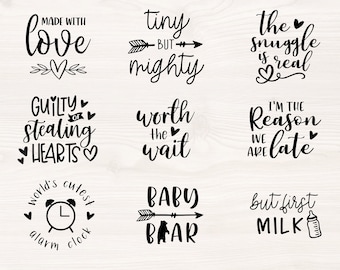 MADE WITH
love
tiny
BUT
mighty
the
snuggle
is real
GUILTY
of
stealing
HEARTS
worth
the
wait
I'M THE
Reason
WE
ARE late
world's cutest
alarm clock
BABY
BEAR
but first
MILK